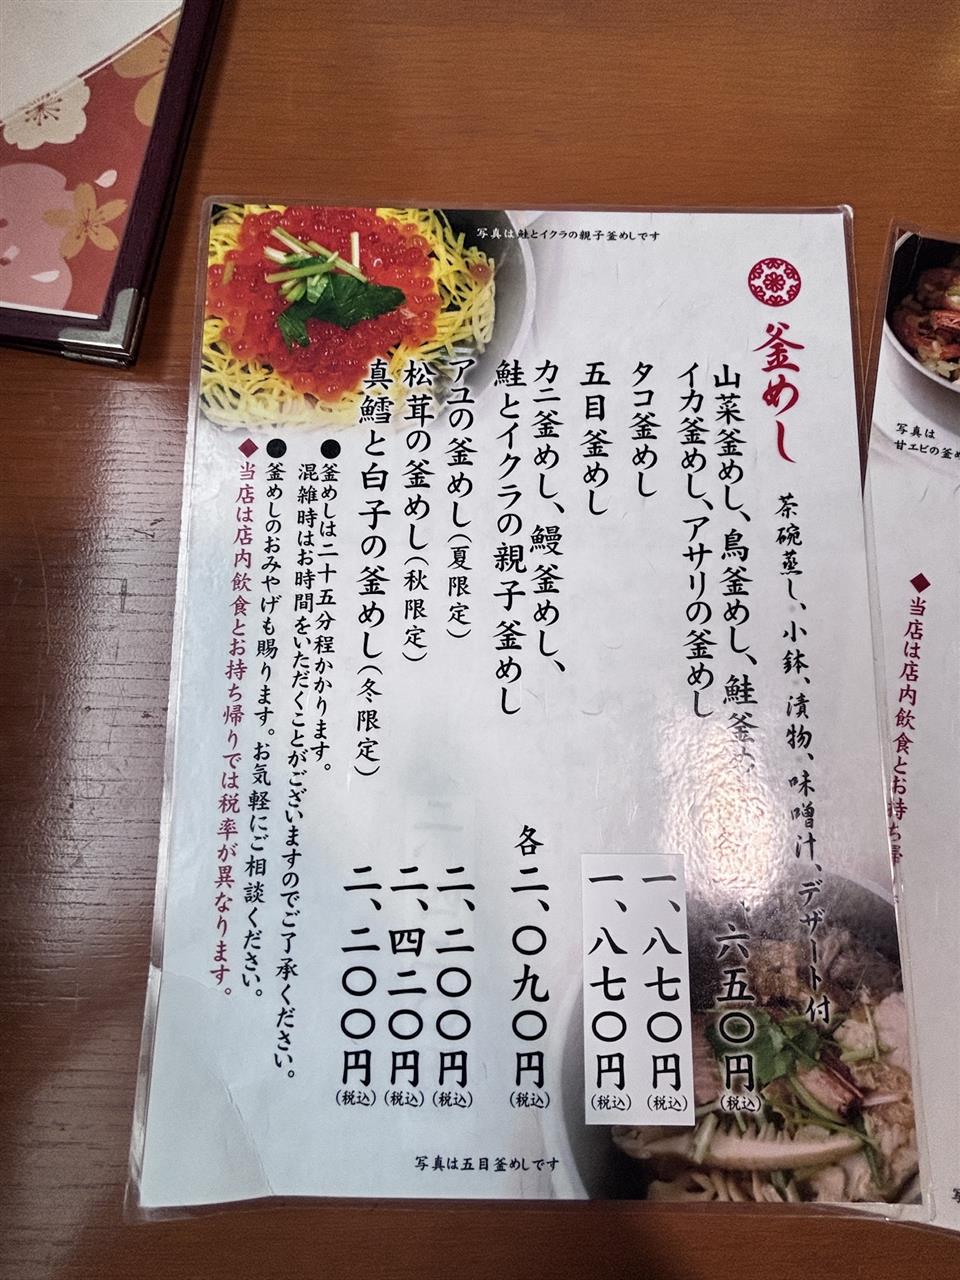 写真は鮭とイクラの親子釜めしです
釜めし
茶碗蒸し、小鉢、漬物、味噌汁、デザート付
山菜釜めし、鳥釜めし、鮭釜め
イカ釜めし、アサリの釜めし
六五〇円(税込)
タコ釜めし
一、八七〇円(税込)
五目釜めし
一、八七〇円(税込)
カニ釜めし、鰻釜めし、
鮭とイクラの親子釜めし
各二、〇九〇円(税込)
アユの釜めし(夏限定)
二、二〇〇円(税込)
松茸の釜めし(秋限定)
二、四二〇円(税込)
真鱈と白子の釜めし(冬限定)
二、二〇〇円(税込)
●釜めしは二十五分程かかります。
混雑時はお時間をいただくことがございますのでご了承ください。
●釜めしのおみやげも賜ります。お気軽にご相談ください。
◆当店は店内飲食とお持ち帰りでは税率が異なります。
写真は五目釜めしです
写真は
甘エビの釜め
◆当店は店内飲食とお持ち帰
写